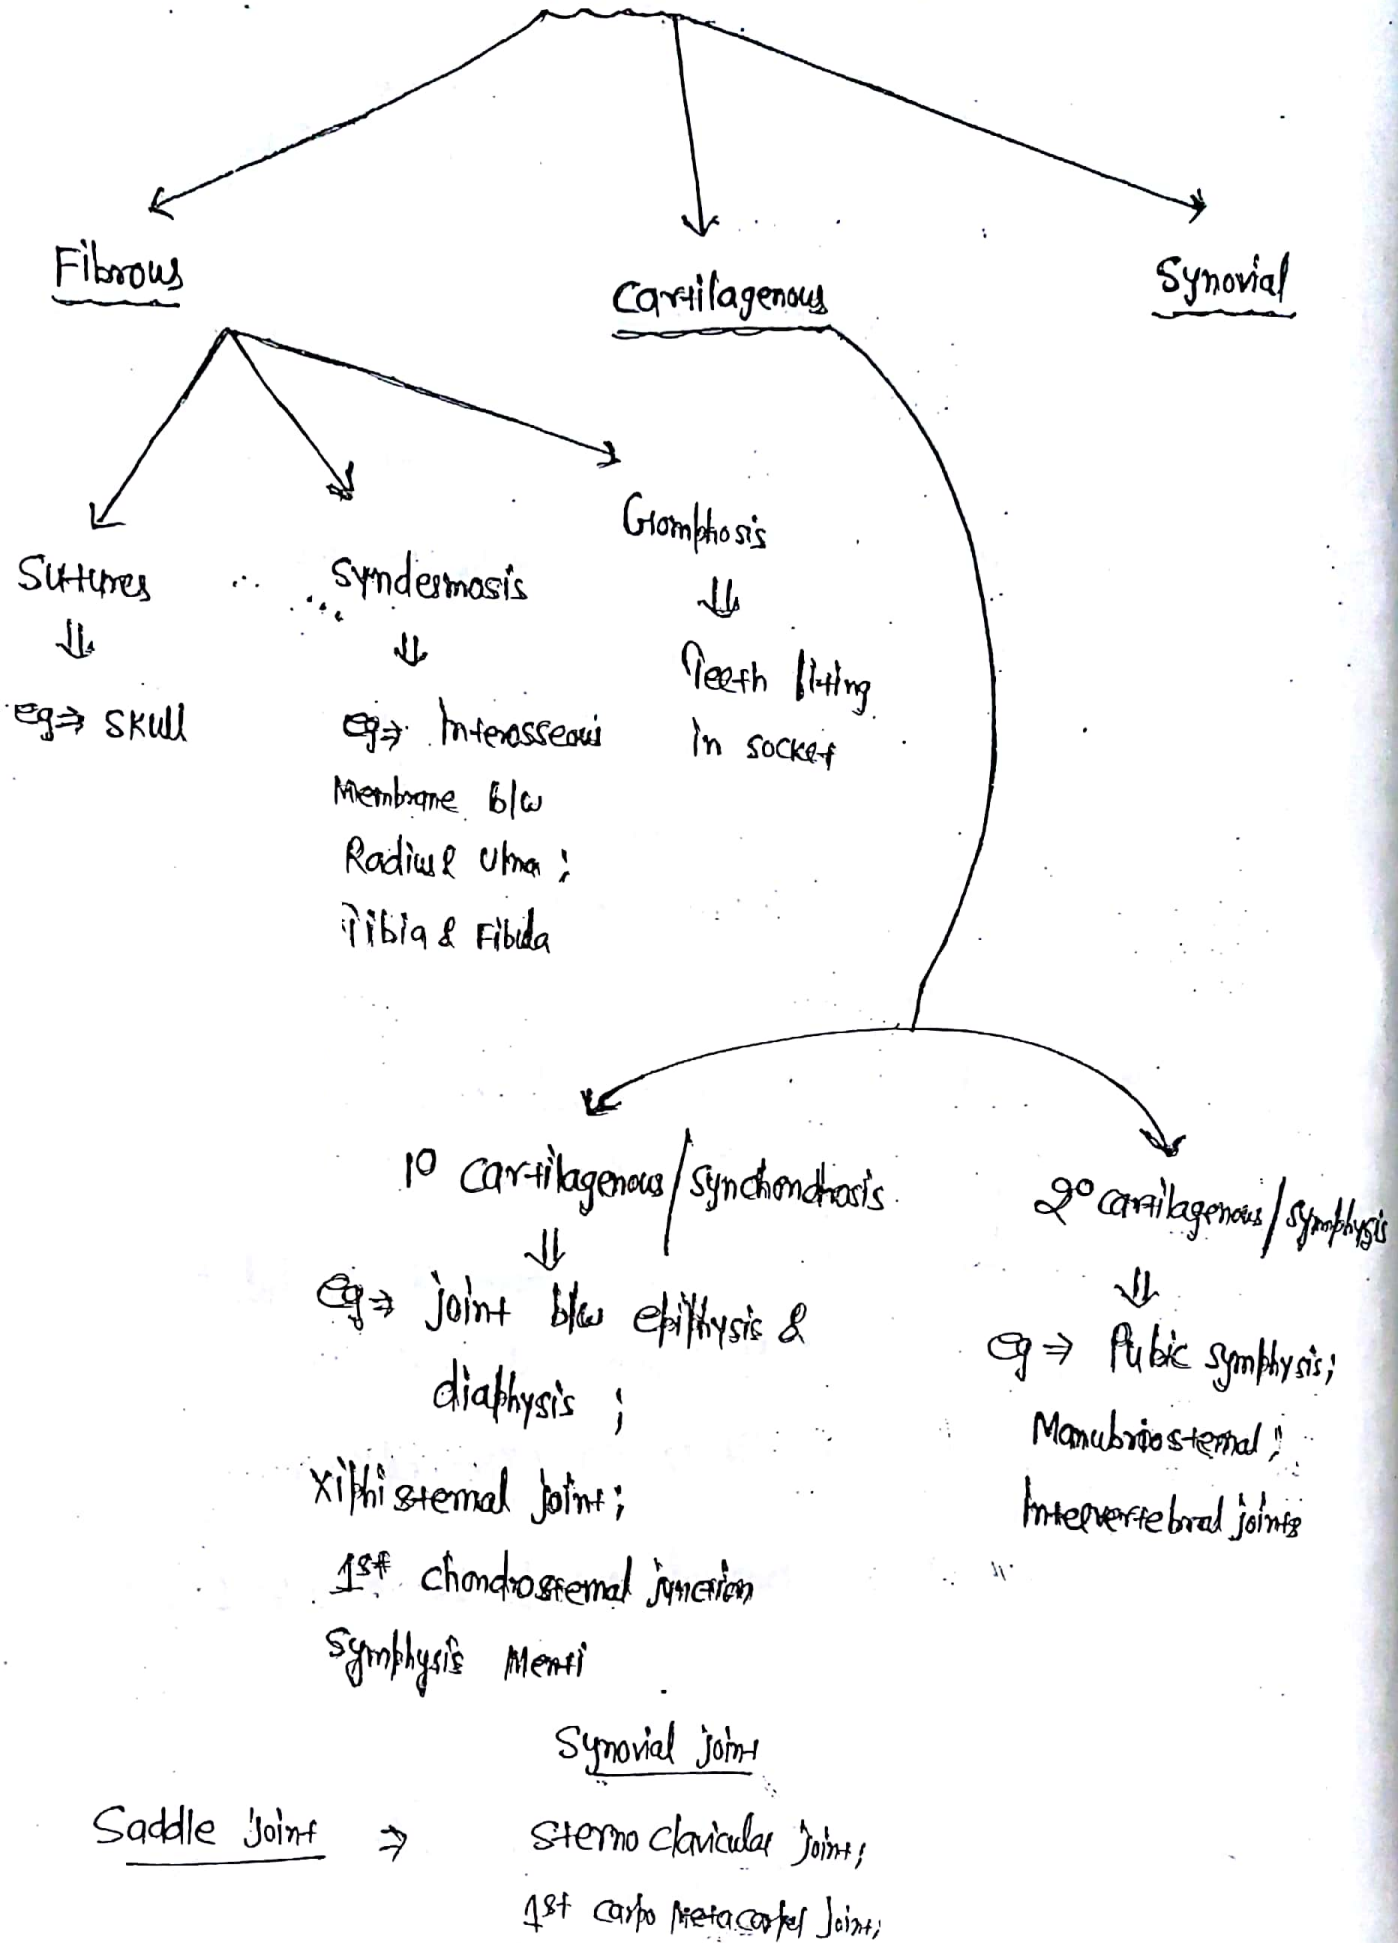 Fibrous
Cartilagenous
Synovial
Sutures
⇓
eg ⇒ Skull
Syndesmosis
⇓
eg ⇒ Interosseous
Membrane b/w
Radius & Ulna ;
Tibia & Fibula
Gomphosis
⇓
Teeth fitting
in socket
1° Cartilagenous / Synchondrosis
⇓
eg ⇒ joint b/w epiphysis &
diaphysis ;
Xiphisternal joint ;
1st Chondrosternal junction
Symphysis Menti
2° cartilagenous / symphysis
⇓
eg ⇒ Pubic symphysis ;
Manubriosternal ;
Intervertebral joints
Synovial joint
Saddle joint ⇒ Sterno clavicular joint ;
1st carpo metacarpal joint ;